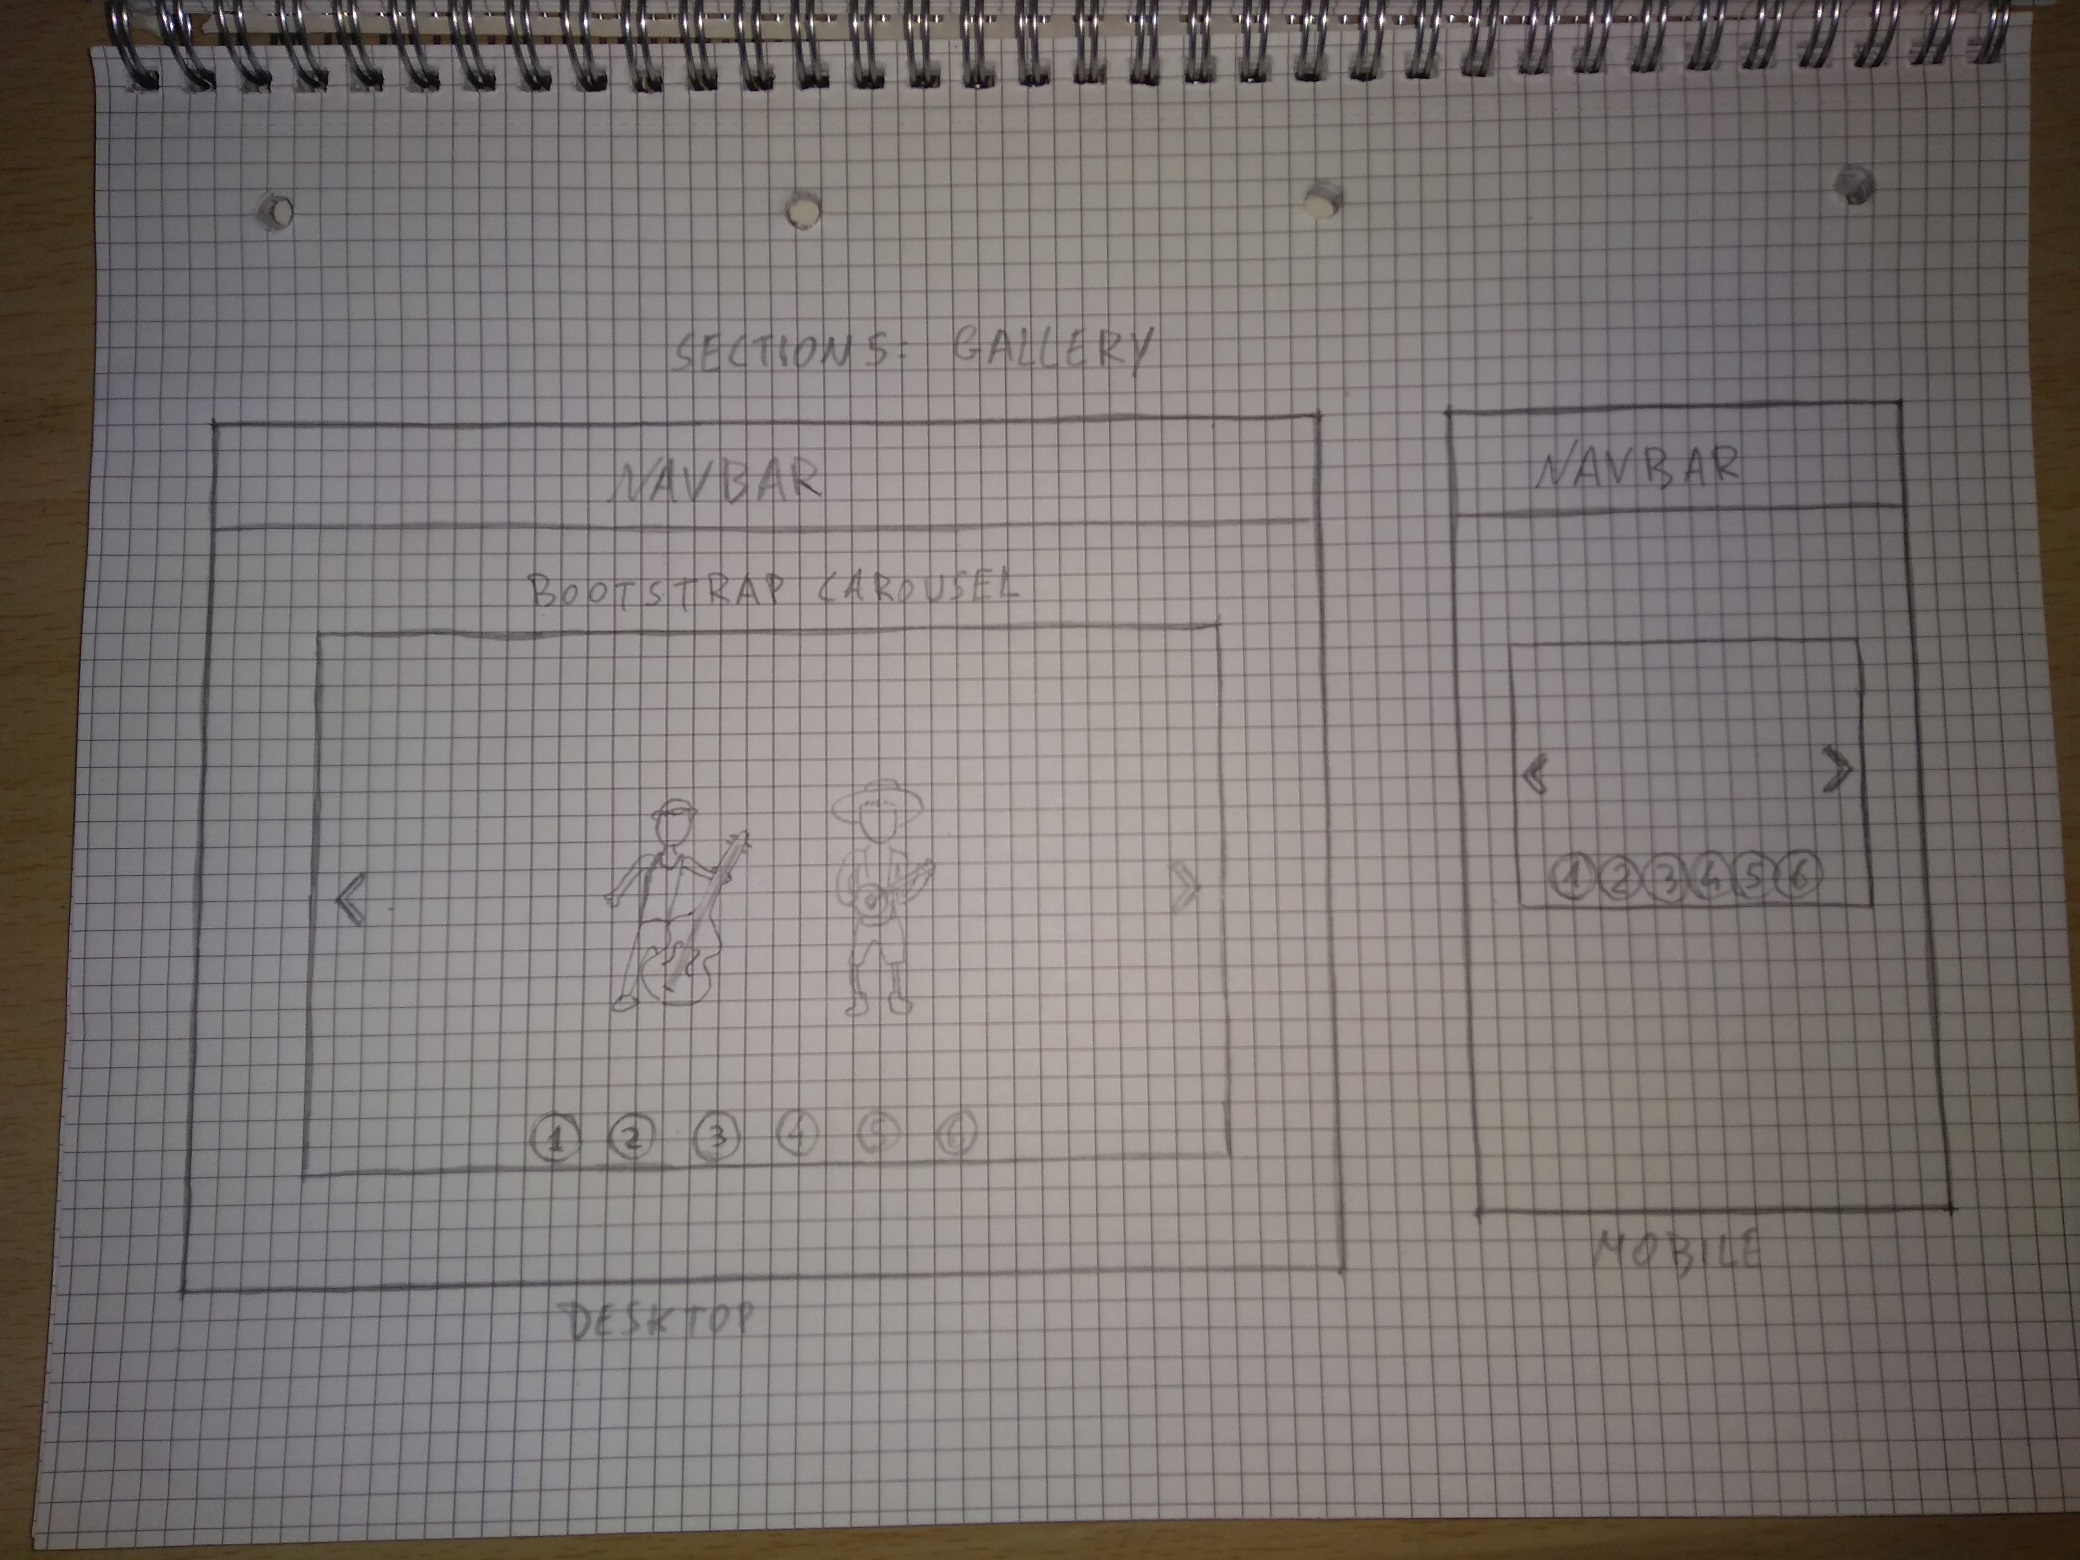 SECTIONS: GALLERY
NAVBAR
BOOTSTRAP CAROUSEL
<
>
1 2 3 4 5 6
DESKTOP
NAVBAR
<
>
1 2 3 4 5 6
MOBILE